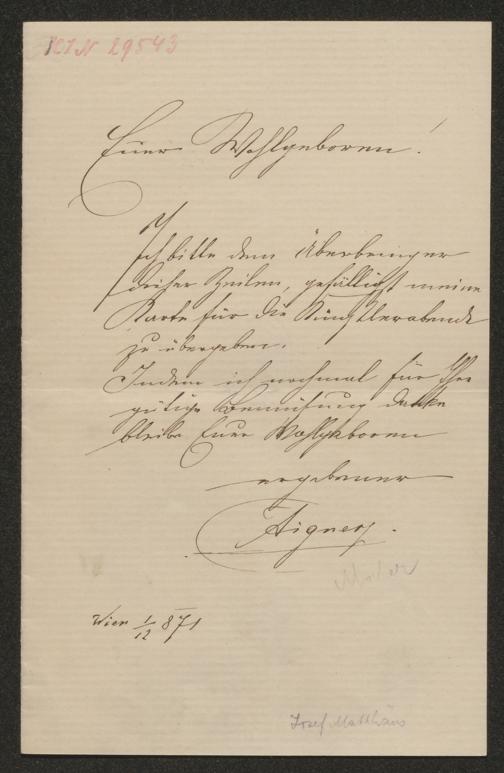 IN 29543
Euer Wohlgeboren!
Ich bitte dem Überbringer
dieser Zeilen, gefälligst meine
Karte für die Künstlerabende
zu übergeben.
Indem ich nochmal für Ihre
gütige Bemühung danke
bleibe Euer Wohlgeboren
ergebener
Aigner.
Maler
Wien 1/12 871
Josef Matthäus